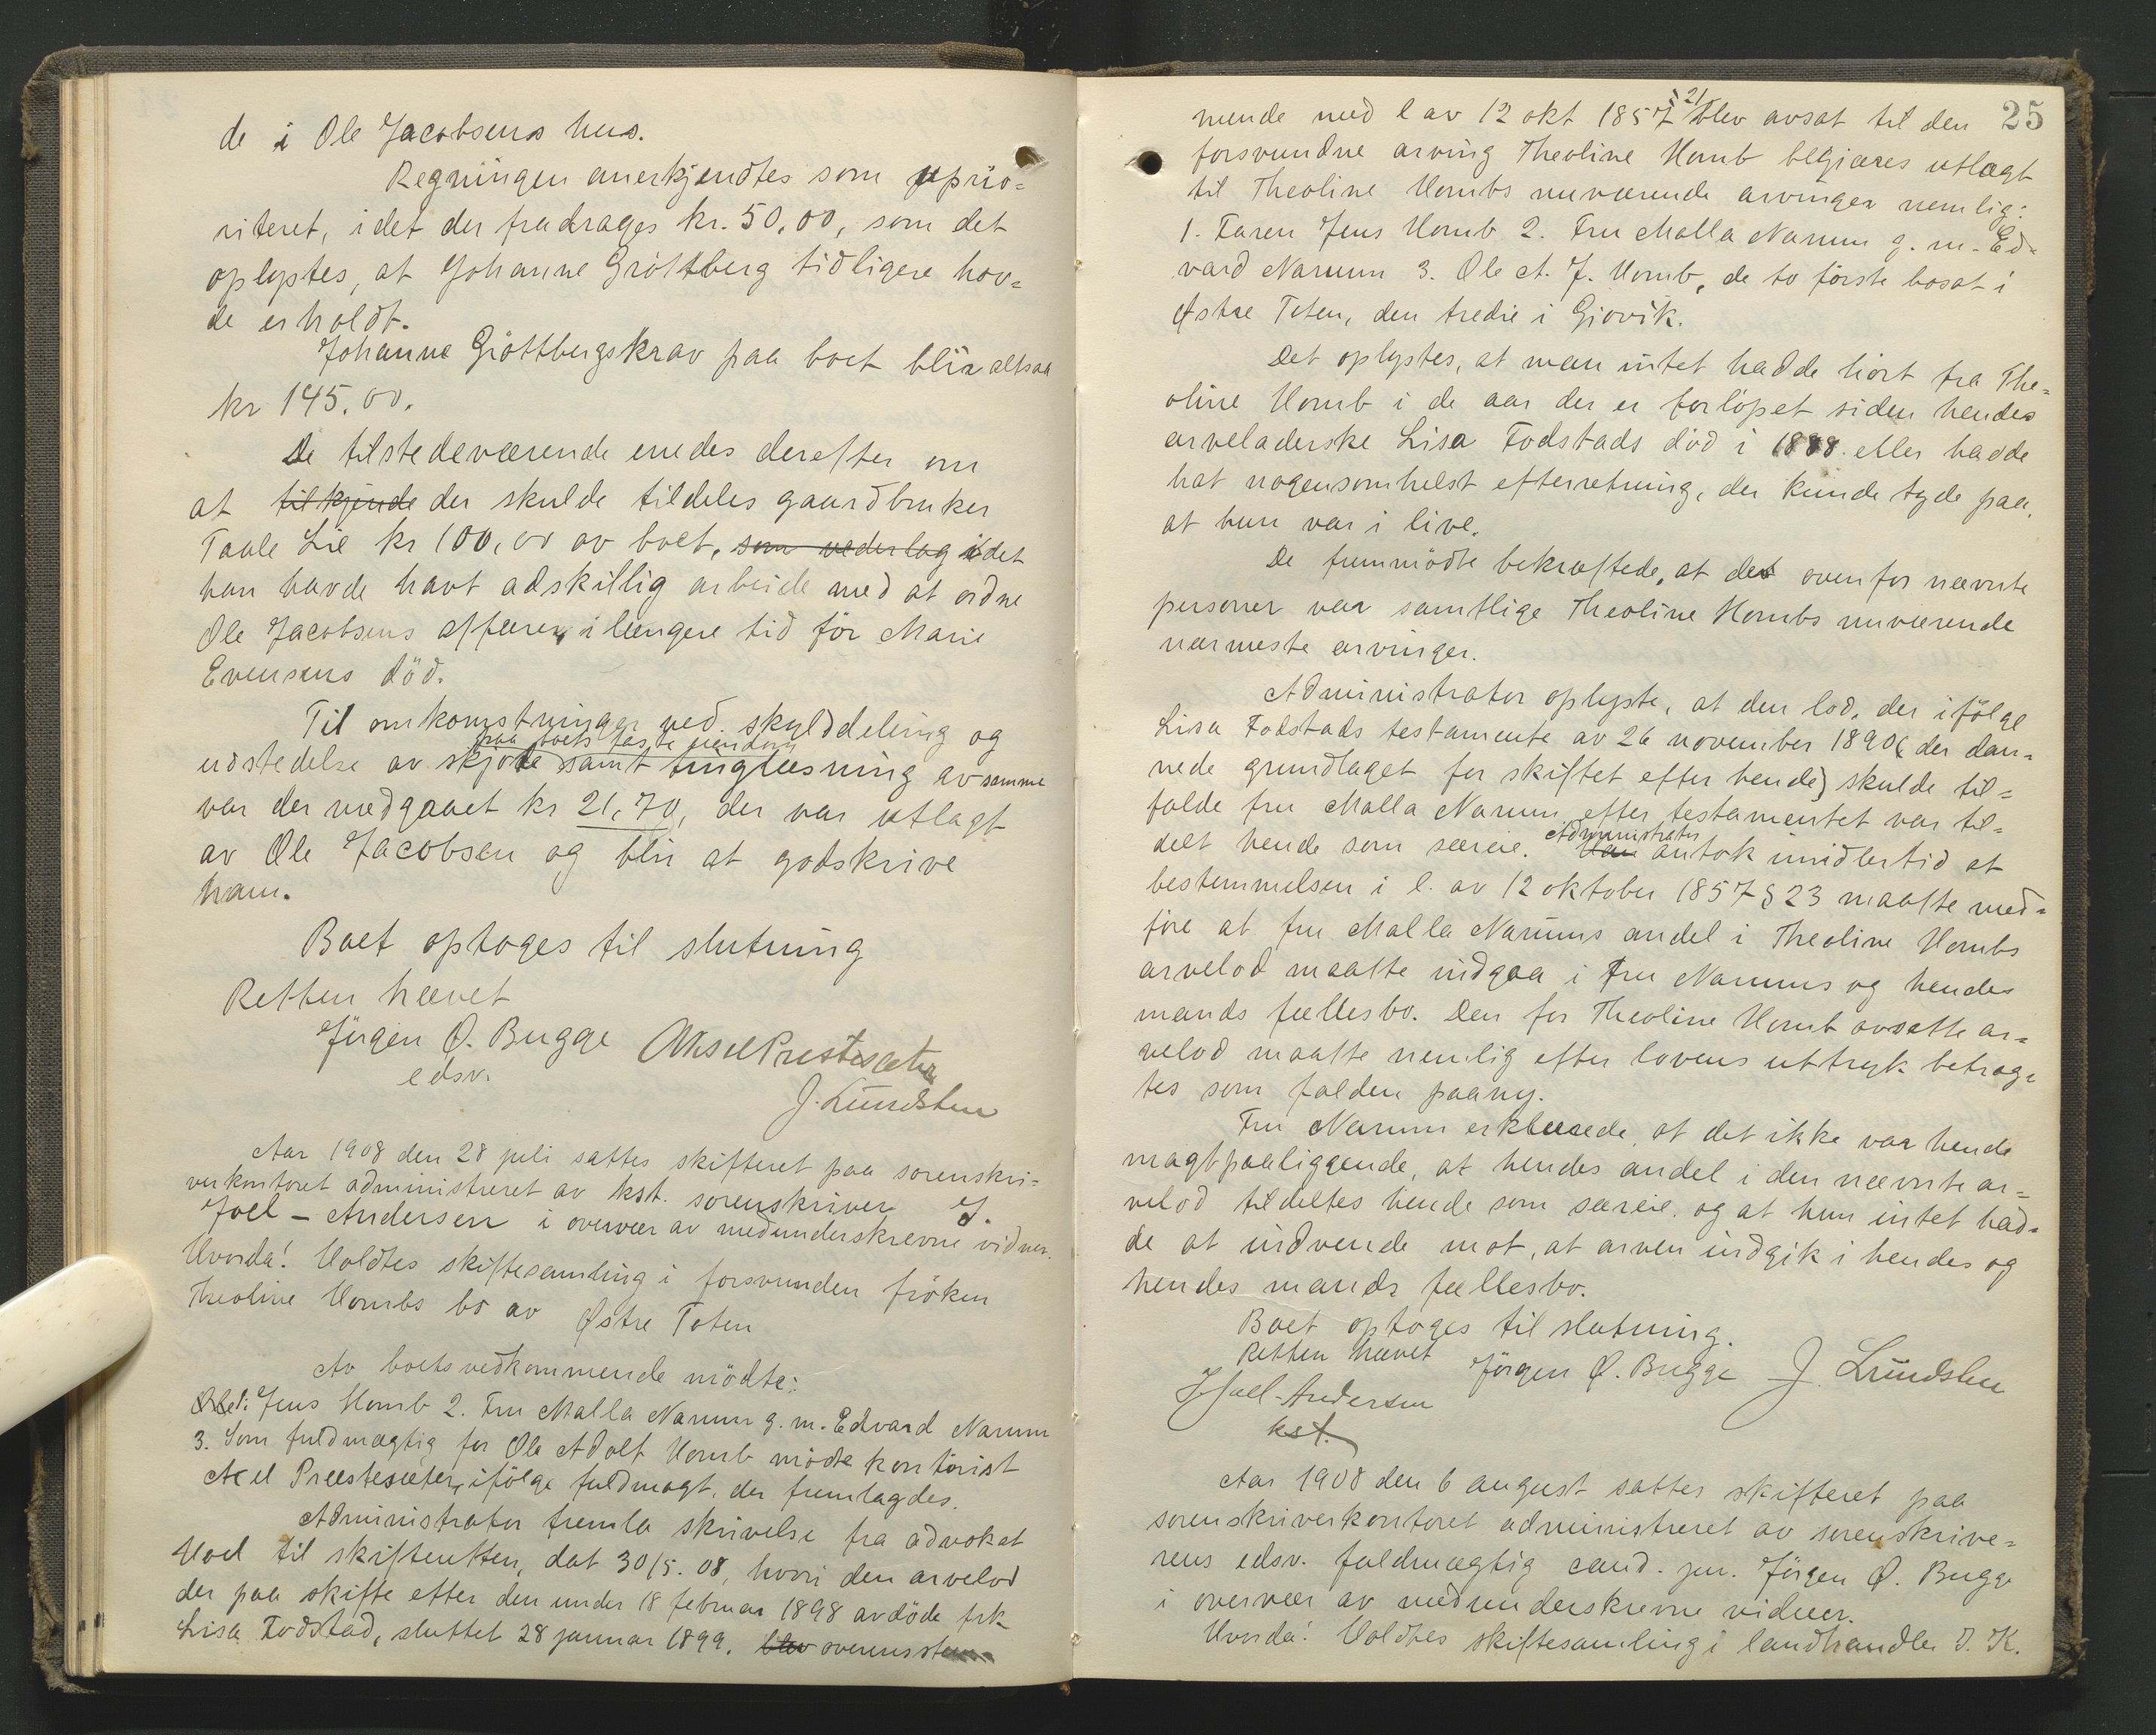 de i Ole Jacobsens hus.
Regningen anerkjendtes som uprio=
riteret, idet der fradrages kr. 50,00, som det
oplystes, at Johanne Gröttberg tidligere hav=
de erholdt.
Johanne Gröttbergs krav paa boet blir altsaa
kr 145,00.
De tilstedeværende enedes derefter om
at tilkjende der skulde tildeles gaardbruker
Taale Lie kr 100,00 av boet, som vederlag idet
han havde havt adskillig arbeide med at ordne
Ole Jacobsens affærer i længere tid för Marie
Evensens död.
Til omkomstninger ved skylddeling og
paa boets faste eiendom
udstedelse av skjöte samt tinglæsning av samme
var der medgaaet kr 21,70, der var utlagt
av Ole Jacobsen og blir at godskrive
ham.
Boet optoges til slutning
Retten hævet
Jörgen Ø. Bugge Aksel Præstesæter
edsv.
J. Lundsten
Aar 1908 den 28 juli sattes skifteret paa sorenskri=
verkontoret administreret av kst. sorenskriver J.
Joel-Andersen i overvær av medunderskrevne vidner.
Hvorda! Holdtes skiftesamling i forsvunden fröken
Theoline Hombs bo av Østre Toten
Av boets vedkommende mödte:
1. Jens Homb 2. Fru Malla Narum g. m. Edvard Narum
3. Som fuldmægtig for Ole Adolf Homb mödte kontorist
Axel Præstesæter, ifölge fuldmagt, der fremlagdes.
Administrator fremla skrivelse fra advokat
Hoel til skifteretten, dat 30/5. 08, hvori den arvelod
der paa skifte efter den under 18 februar 1898 avdöde frk
Lisa Fodstad, sluttet 28 januar 1899, blev overensstem-
25
§ 21
mende med l av 12 okt 1857 blev avsat til den
forsvundne arving Theoline Homb begjæres utlagt
til Theoline Hombs nuværende arvinger nemlig:
1. Faren Jens Homb 2. Fru Malla Narum g. m. Ed=
vard Narum 3. Ole A. J. Homb, de to förste bosat i
Østre Toten, den tredie i Gjøvik.
Det oplystes, at man intet hadde hört fra The=
oline Homb i de aar der er forlöpet siden hendes
arveladerske Lisa Fodstads död i 1898 eller hadde
hat nogensomhelst efterretning, der kunde tyde paa,
at hun var i live.
De fremmödte bekræftede, at det ovenfor nævnte
personer var samtlige Theoline Hombs nuværende
nærmeste arvinger.
Administrator oplyste, at den lod, der ifölge
Lisa Fodstads testamente av 26 november 1890 (der dan=
nede grundlaget for skiftet efter hende) skulde til=
falde fru Malla Narum efter testamentet var til=
Administrator
delt hende som særeie. Han antok imidlertid at
bestemmelsen i l. av 12 oktober 1857 § 23 maatte med=
före at fru Malla Narums andel i Theoline Hombs
arvelod maatte indgaa i Fru Narums og hendes
mands fællesbo. Den for Theoline Homb avsatte ar=
velod maatte nemlig efter lovens uttryk betrag=
tes som falden paany.
Fru Narum erklærede, at det ikke var hende
magtpaaliggende, at hendes andel i den nævnte ar=
velod tildeltes hende som særeie, og at hun intet had=
de at indvende mot, at arven indgik i hendes og
hendes mands fællesbo.
Boet optoges til slutning.
Retten hævet
Jörgen Ø. Bugge J. Lundsten
J Joel-Andersen
kst.
Aar 1908 den 6 august sattes skifteret paa
sorenskriverkontoret administreret av sorenskrive=
rens edsv. fuldmægtig cand. jur. Jörgen Ø. Bugge
i overvær av medunderskrevne vidner.
Hvorda! Holdtes skiftesamling i landhandler J. K.